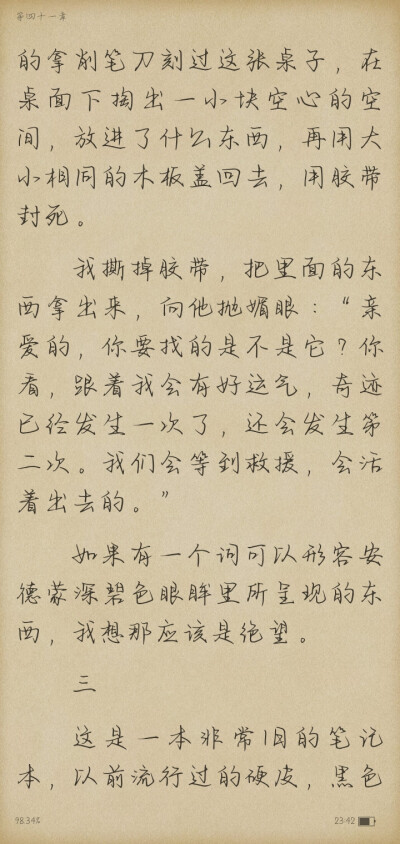 第四十一章
的拿削笔刀刻过这张桌子，在
桌面下掏出一小块空心的空
间，放进了什么东西，再用大
小相同的木板盖回去，用胶带
封死。
我撕掉胶带，把里面的东
西拿出来，向他抛媚眼：“亲
爱的，你要找的是不是它？你
看，跟着我会有好运气，奇迹
已经发生一次了，还会发生第
二次。我们会等到救援，会活
着出去的。”
如果有一个词可以形容安
德蒙深碧色眼眸里所呈现的东
西，我想那应该是绝望。
三
这是一本非常旧的笔记
本，以前流行过的硬皮，黑色
98.34%
23:42